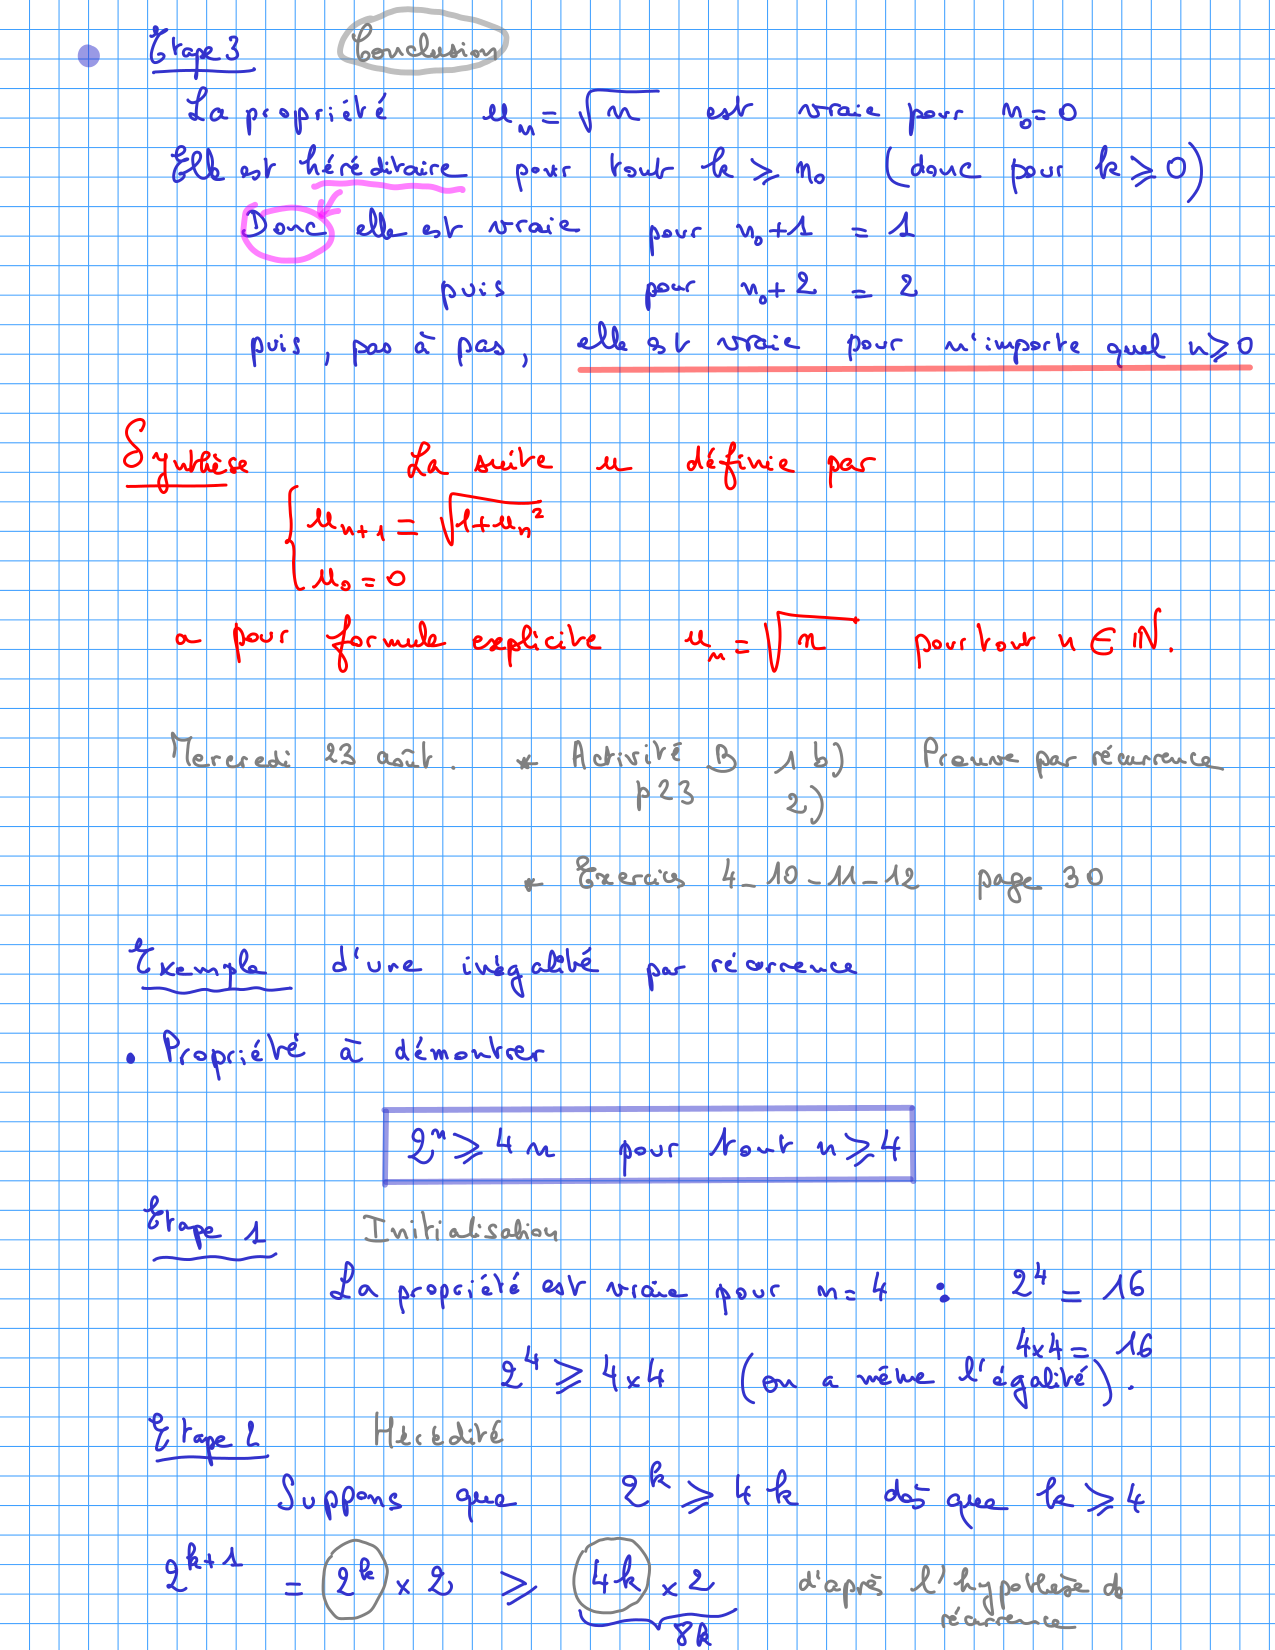 Etape 3 Conclusion
La propriété u_n = √n est vraie pour n₀ = 0
Elle est héréditaire pour tout k ⩾ n₀ (donc pour k ⩾ 0)
Donc elle est vraie pour n₀+1 = 1
puis pour n₀+2 = 2
puis, pas à pas, elle est vraie pour n'importe quel n ⩾ 0
Synthèse La suite u définie par
{ u_{n+1} = √(1+u_n²)
u₀ = 0
a pour formule explicite u_n = √n pour tout n ∈ ℕ.
Mercredi 23 août. * Activité B 1 b) Preuve par récurrence
p23 2)
* Exercices 4_10_11_12 page 30
Exemple d'une inégalité par récurrence
• Propriété à démontrer
2ⁿ ⩾ 4n pour tout n ⩾ 4
Etape 1 Initialisation
La propriété est vraie pour n = 4 : 2⁴ = 16
4×4 = 16
2⁴ ⩾ 4×4 (on a même l'égalité).
Etape 2 Hérédité
Suppons que 2^k ⩾ 4k dès que k ⩾ 4
2^{k+1} = 2^k × 2 ⩾ 4k × 2 d'après l'hypothèse de
8k récurrence